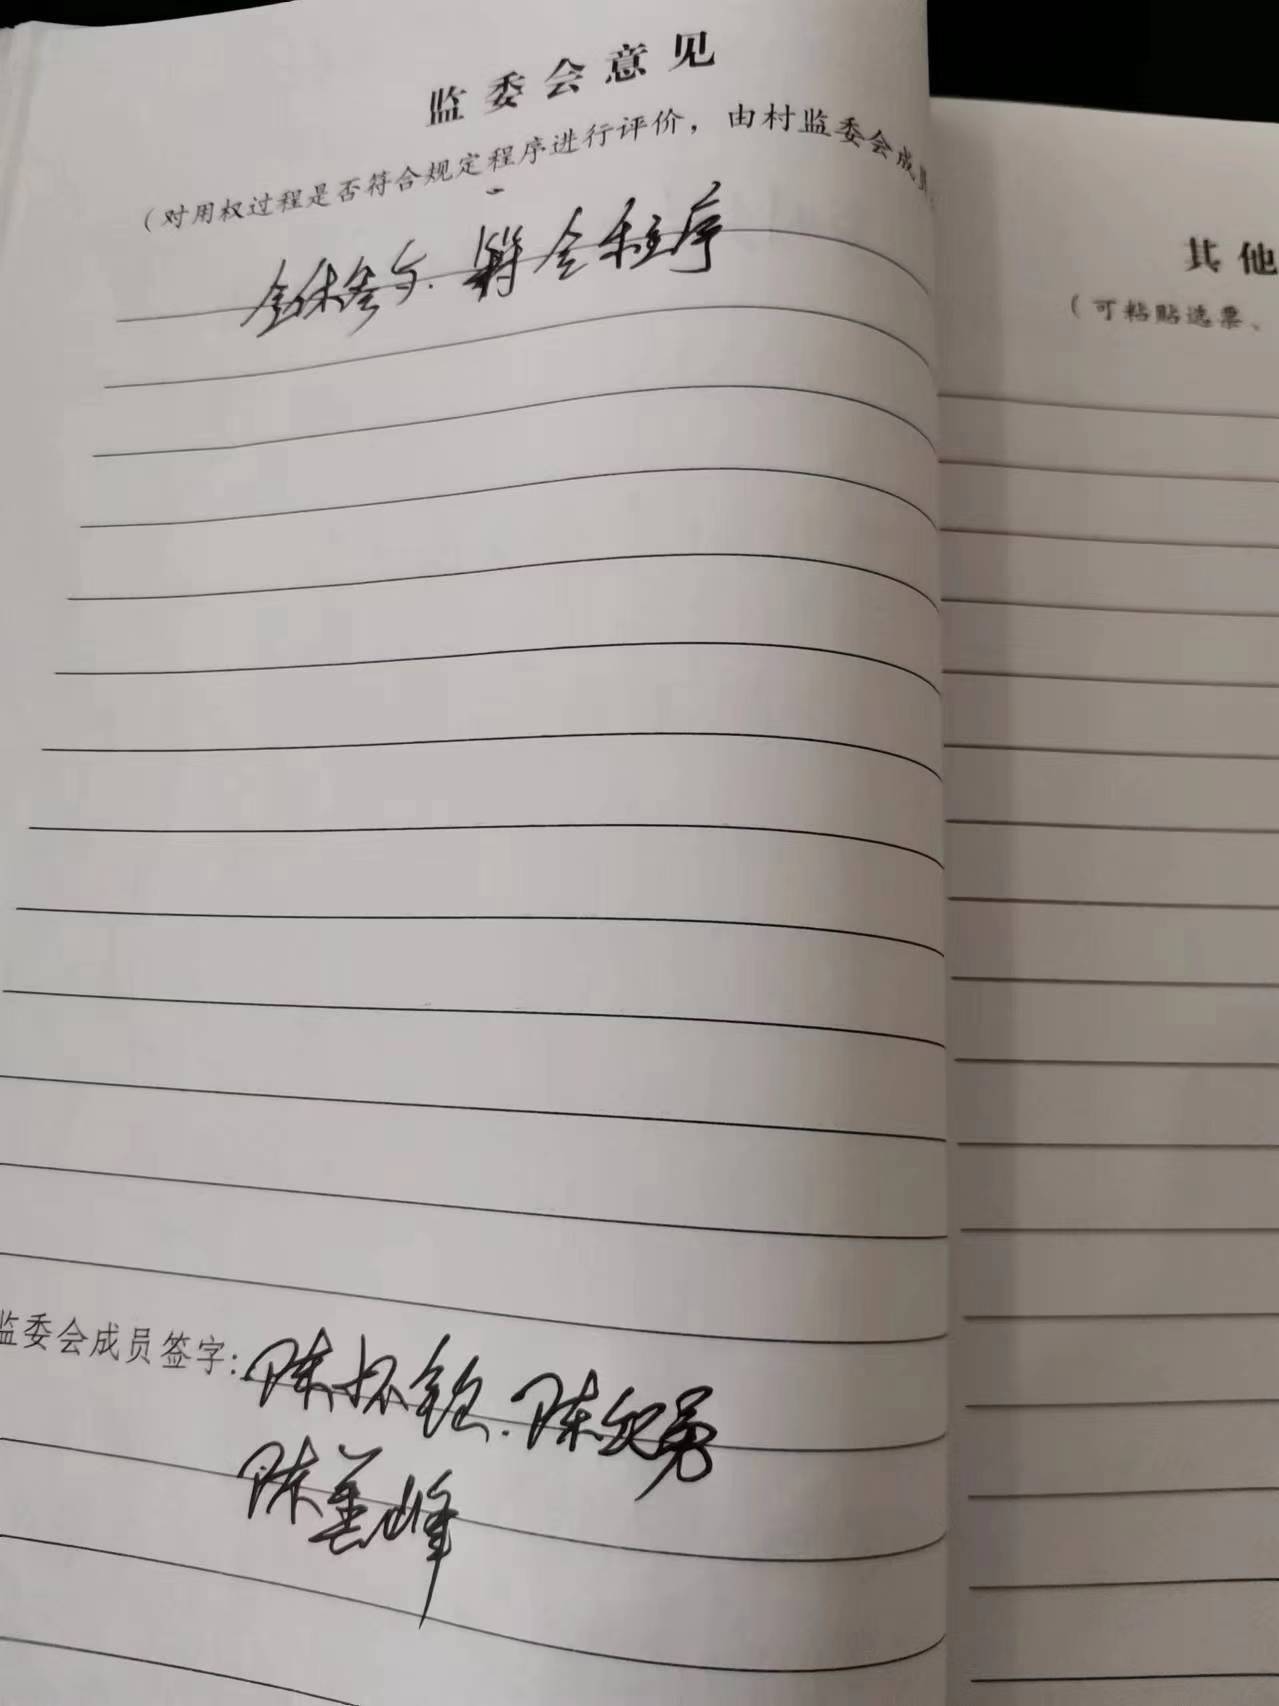 监委会意见
（对用权过程是否符合规定程序进行评价，由村监委会成员
全体参与.符合程序
监委会成员签字:陈怀钦.陈
陈善峰
其他
（可粘贴选票、